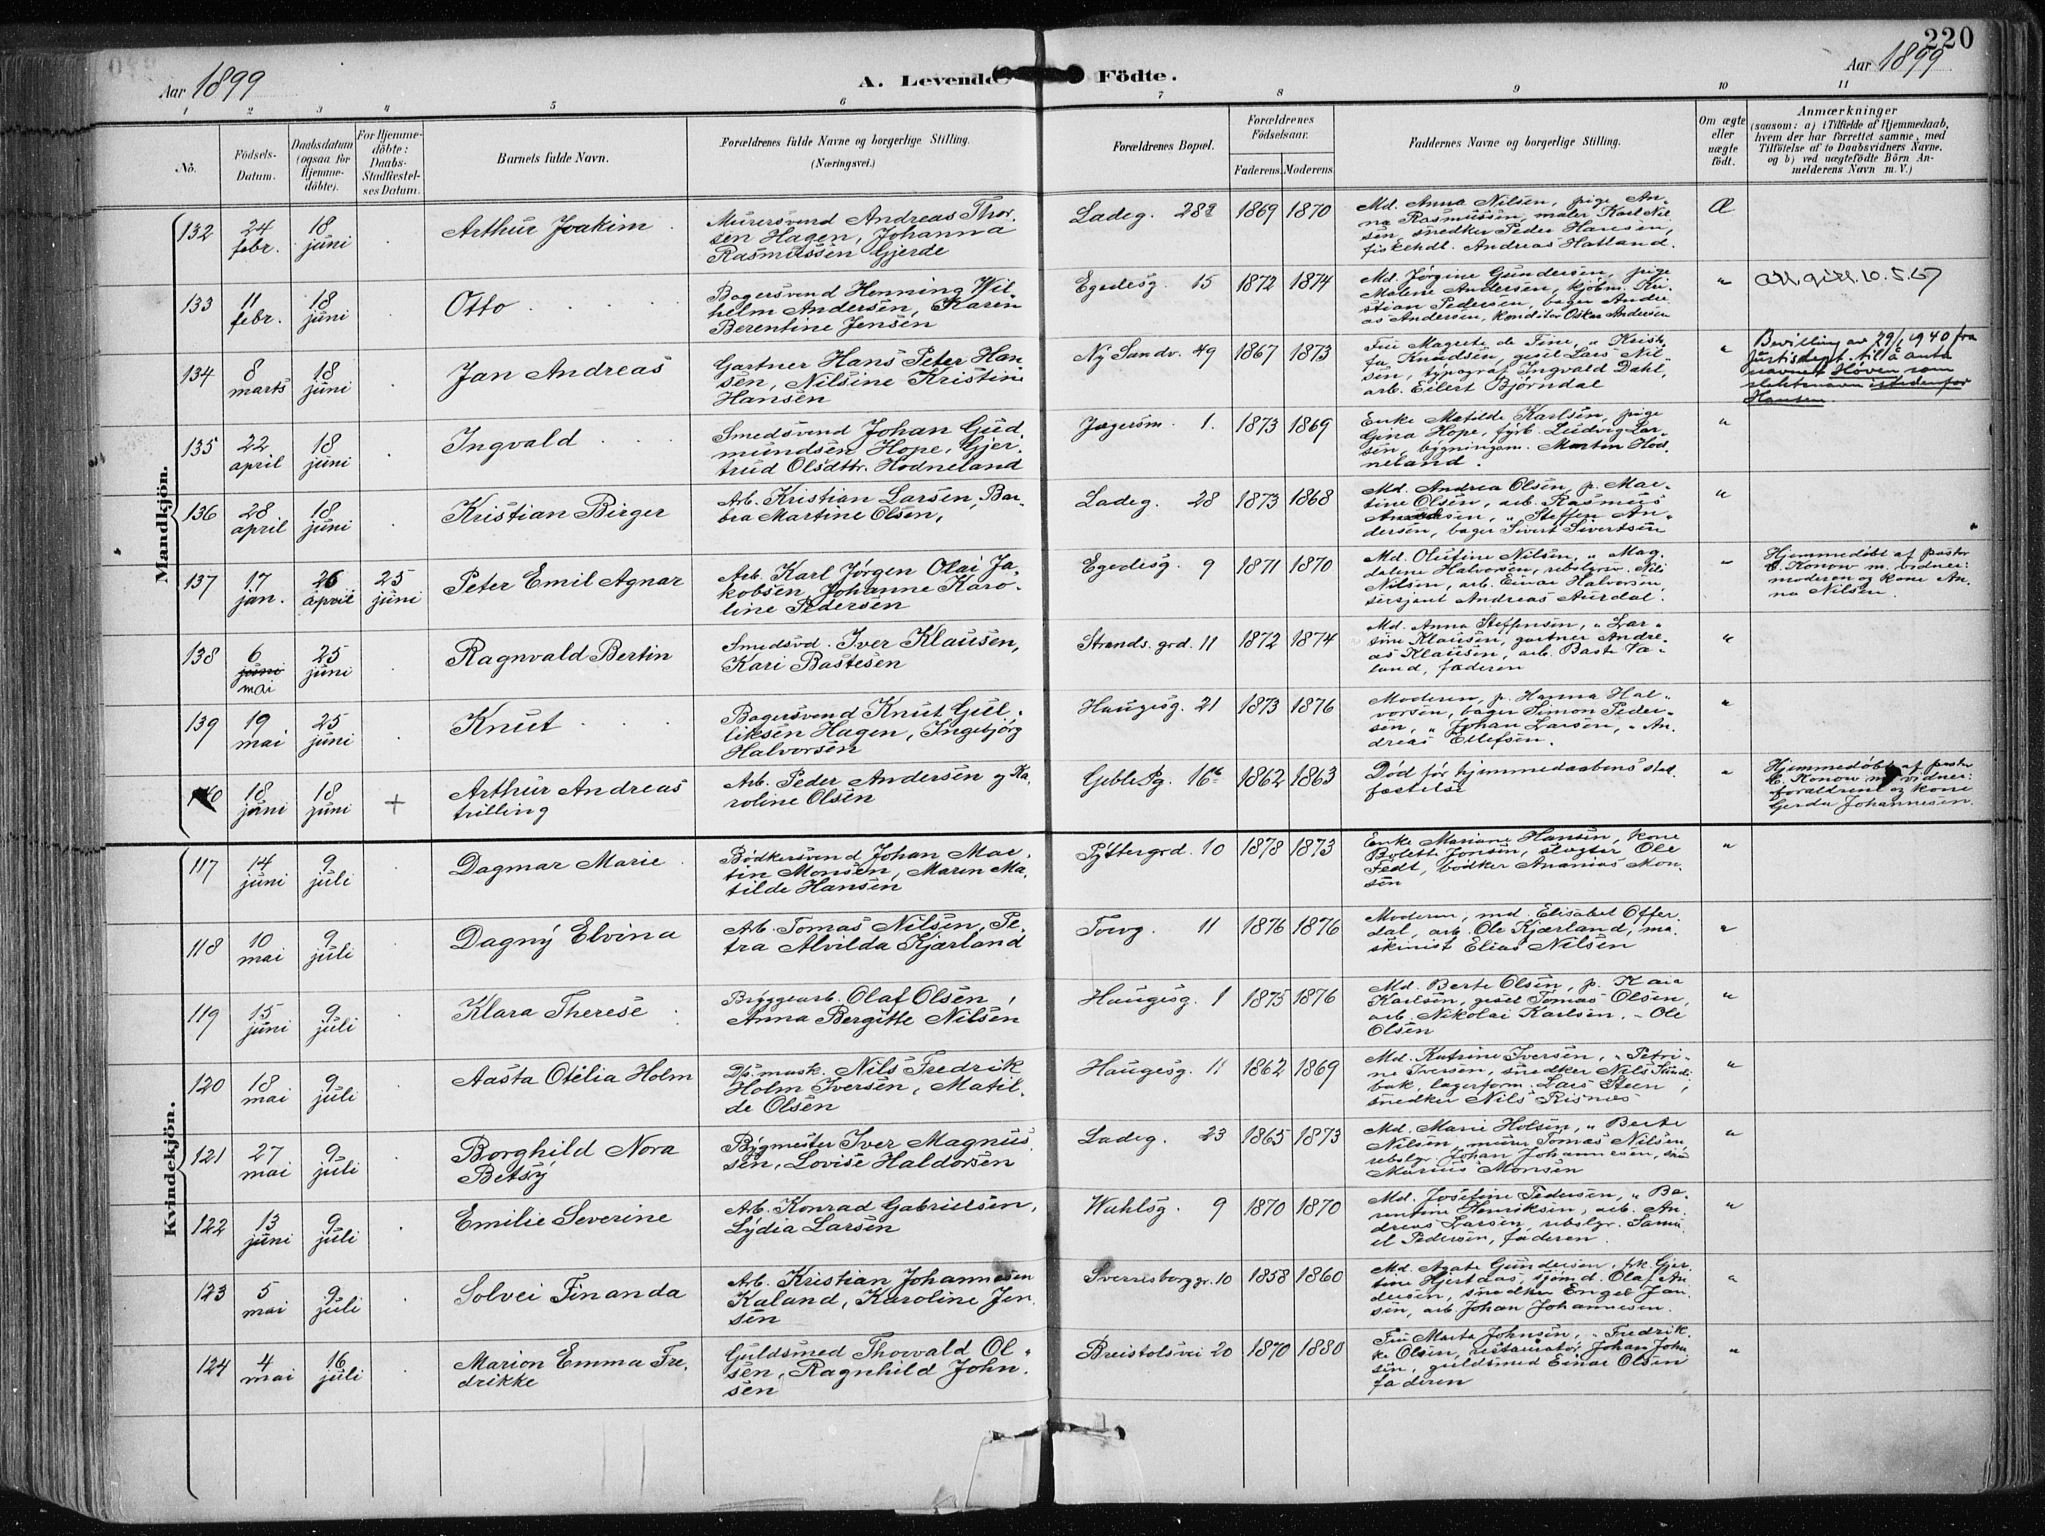 220
Aar 1899
A. Levende Födte.
Aar 1899
1 2 3 4 5 6 7 8 9 10 11
No.
Födsels-
Datum.
Daabsdatum
(ogsaa for
Hjemme-
döbte).
For Hjemme-
döbte:
Daabs-
Stadfæstel-
ses Datum.
Barnets fulde Navn.
Forældrenes fulde Navne og borgerlige Stilling.
(Næringsvei.)
Forældrenes Bopæl.
Forældrenes
Födselsaar.
Faderens. Moderens.
Faddernes Navne og borgerlige Stilling.
Om ægte
eller
uægte
født.
Anmærkninger
(saasom: a) i Tilfælde af Hjemmedaab,
hvem der har forrettet samme, med
Tilföielse af to Daabsvidners Navne,
og b) ved uægtefödte Börn An-
melderens Navn m. V.)
Mandkjön.
132
24
febr.
18
juni
Arthur Joakim
Murersvend Andreas Thor.
sen Hagen, Johanna
Rasmussen Gjerde
Ladeg. 28a
1869 1870
Md. Anna Nilsen, pige An-
na Rasmussen, maler Karl Nil
sen, snedker Peder Hansen,
fiskehdl. Andreas Hatland.
Æ
133
11
febr.
18
juni
Otto
Bagersvend Henning Wil
helm Andersen, Karen
Berentine Jensen
Egedesg. 15
1872 1874
Md. Jørgine Gundersen, pige
Malene Andersen, kjøbm. Kri-
stian Pedersen, bager Andre
as Andersen, konditor Oskar Andersen
"
10.5.67
134
8
marts
18
juni
Jan Andreas
Gartner Hans Peter Han
sen, Nilsine Kristine
Hansen
Ny Sandv. 49
1867 1873
Fru Magrete de Fine, " Krist-
fa Knudsen, gesel Lars Nil
sen, typograf Ingvald Dahl,
arb. Eilert Bjørndal
"
Bevilling av 29/1 1940 fra
Justisdept. til å anta
navnet Høven som
slektsnavn istedenfor
Hansen.
135
22
april
18
juni
Ingvald
Smedsvend Johan Gud
mundsen Hope, Gjer
trud Olsdttr. Hodneland
Jægersm. 1.
1873 1869
Enke Matilde Karlsen, pige
Gina Hope, fyrb. Ludvig Lar
sen, bygningsm. Martin Hod
neland.
"
136
28
april
18
juni
Kristian Birger
Arb. Kristian Larsen, Bar
bra Martine Olsen,
Ladeg. 28
1873 1868
Md. Andrea Olsen, p. Mar-
tine Olsen, arb. Rasmus
Andersen, " Steffen An-
dersen, bager Sivert Sivertsen
"
137
17
jan.
26
april
25
juni
Peter Emil Agnar
Arb. Karl Jørgen Olai Ja-
kobsen, Johanne Karo-
line Pedersen
Egedesg. 9
1871 1870
Md. Olufine Nilsen, " Mag
dalene Halvorsen, rebslgrsv. Nils
Nilsen, arb. Einar Halvorsen,
sersjant Andreas Aurdal.
"
Hjemmedøbt af pastor
C. Konow m. vidner:
moderen og kone An-
na Nilsen.
138
6
juni
mai
25
juni
Ragnvald Bertin
Smedsvd. Iver Klausen,
Kari Bastesen
Strands. grd. 11
1872 1874
Md. Anna Steffensen, " Lar"
sine Klausen, gartner Andre-
as Klausen, arb. Baste Va-
land, faderen
"
139
19
mai
25
juni
Knut
Bagersvend Knut Gul-
liksen Hagen, Ingebjørg
Halvorsen
Haugesg. 21
1873 1876
Moderen, p. Hanna Hal"
vorsen, bager Simon Peder-
sen, " Johan Larsen, " An.
dreas Ellefsen.
"
140
18
juni
18
juni
+
Arthur Andreas
trilling
Arb. Peder Andersen og Ka
roline Olsen
Geble Pg. 16b
1862 1863
Død før hjemmedaabens stad
fæstelse
"
Hjemmedøbt af pastor
C. Konow m. vidner:
forældrene og kone
Gerda Johannesen.
Kvindekjön.
117
14
juni
9
juli
Dagmar Marie
Bødkersvend Johan Mar-
tin Monsen, Maren Ma-
tilde Hansen
Pyttergrd. 10
1878 1873
Enke Mariane Hansen, kone
Bolette Jonsen, slagter Ole
Fedt, bødker Ananias Mon-
sen
"
118
10
mai
9
juli
Dagny Elvina
Arb. Tomas Nilsen, Pe.
tra Alvilda Kjærland
Torvg. 11
1876 1876
Moderen, md. Elisabet Offer
dal, arb. Ole Kjærland, ma
skinist Elias Nilsen
"
119
15
juni
9
juli
Klara Therese
Bryggearb. Olaf Olsen,
Anna Bergitte Nilsen
Haugesg. 1
1875 1876
Md. Berte Olsen, p. Kaia
Karlsen, gesel Tomas Olsen,
arb. Nikolai Karlsen, " Ole
Olsen
"
120
18
mai
9
juli
Aasta Otelia Holm
Ds. mask. Nils Fredrik
Holm Iversen, Matil-
de Olsen
Haugesg. 11
1862 1869
Md. Katrine Iversen, " Petri-
ne Iversen, snedker Nils
bak, lagerform. Lars Steen,
snedker Nils Risnæs
"
121
27
mai
9
juli
Borghild Nora
Betsy
Bygmester Iver Magnus
sen, Lovise Haldorsen
Ladeg. 23
1865 1873
Md. Marie Holsen, " Berte
Nilsen, murer Tomas Nilsen
rebslgr. Johan Johannesen,
Marius Monsen
"
122
13
juni
9
juli
Emilie Severine
Arb. Konrad Gabrielsen,
Lydia Larsen
Wahlsg. 9
1870 1870
Md. Josefine Pedersen, " Be-
rentine Henriksen, arb. An.
dreas Larsen, rebslgr. Samu
el Pedersen, faderen.
"
123
5
mai
9
juli
Solvei Finanda
Arb. Kristian Johannesen
Kaland, Karoline Jen.
sen
Sverresborggr. 10
1858 1860
Md. Agate Gundersen, frk. Gjer
tine Hjertaas, sjømd. Olaf An
dersen, snedker Engel Jan
sen, arb. Johan Johannesen.
"
124
4
mai
16
juli
Marion Emma Fre
drikke
Guldsmed Thorvald Ol"
sen, Ragnhild John.
sen
Breistolsvei 20
1870 1880
Fru Marta Johnsen, " Fredrik.
ke Olsen, restauratør Johan John
sen, guldsmed Einar Olsen
faderen
"